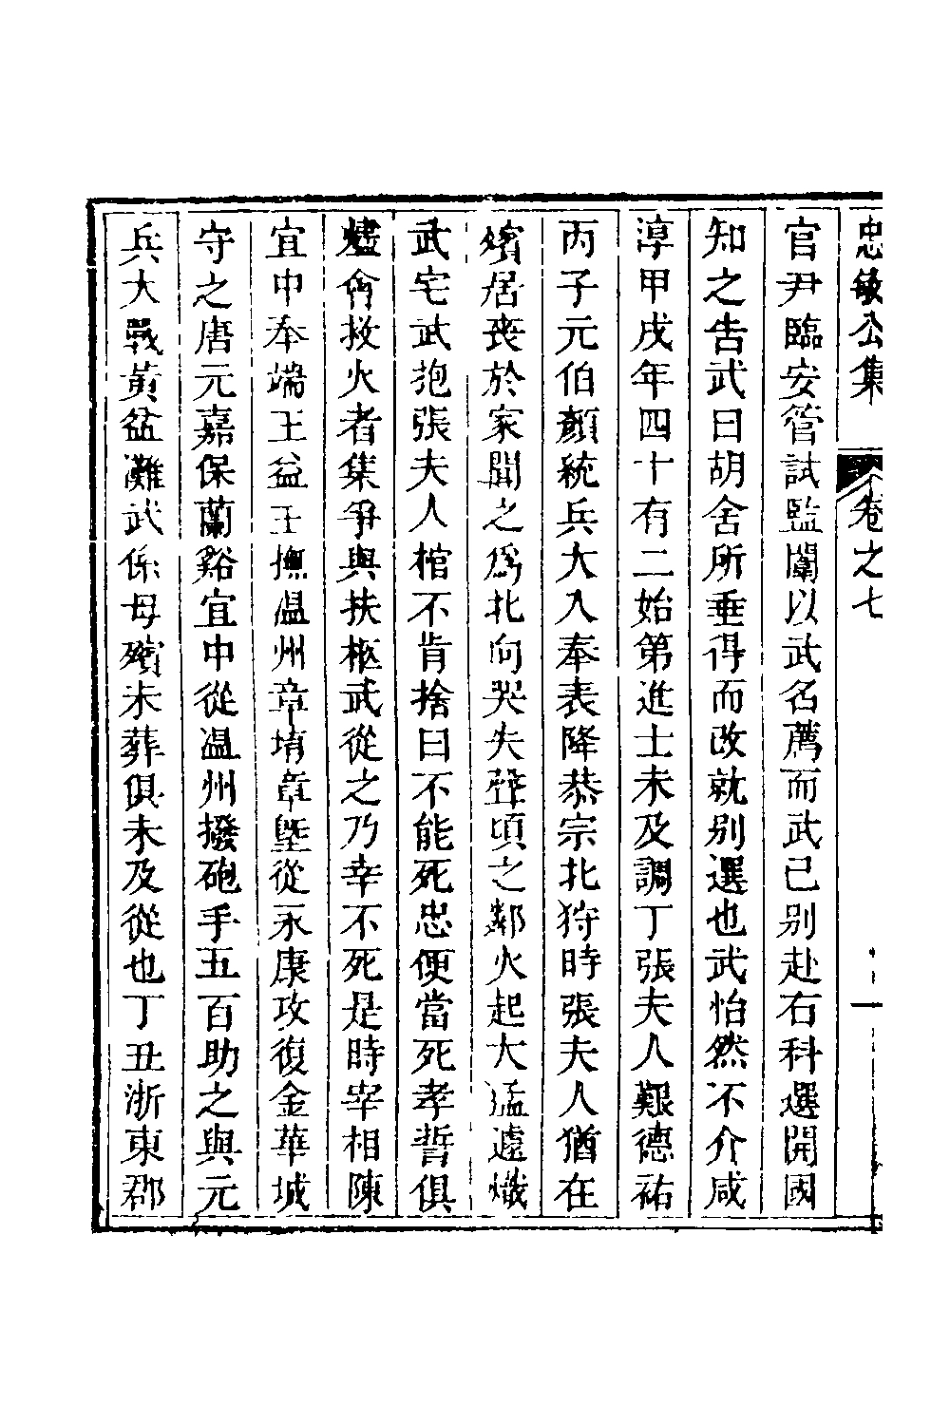 忠敏公集 卷之七
官尹臨安管試監闈以武名薦而武已别赴右科選開國
知之告武曰胡舍所垂得而改就别選也武怡然不介咸
淳甲戌年四十有二始第進士未及調丁張夫人艱德祐
丙子元伯顏統兵大入奉表降恭宗北狩時張夫人猶在
殯居喪於家聞之爲北向哭失聲頃之鄰火起大猛遽熾
武宅武抱張夫人棺不肯捨曰不能死忠便當死孝誓俱
燼會救火者集爭與扶柩武從之乃幸不死是時宰相陳
宜中奉端王益王撫温州章堉章塈從永康攻復金華城
守之唐元嘉保蘭谿宜中從温州撥砲手五百助之與元
兵大戰黃盆灘武係母殯未葬俱未及從也丁丑浙東郡